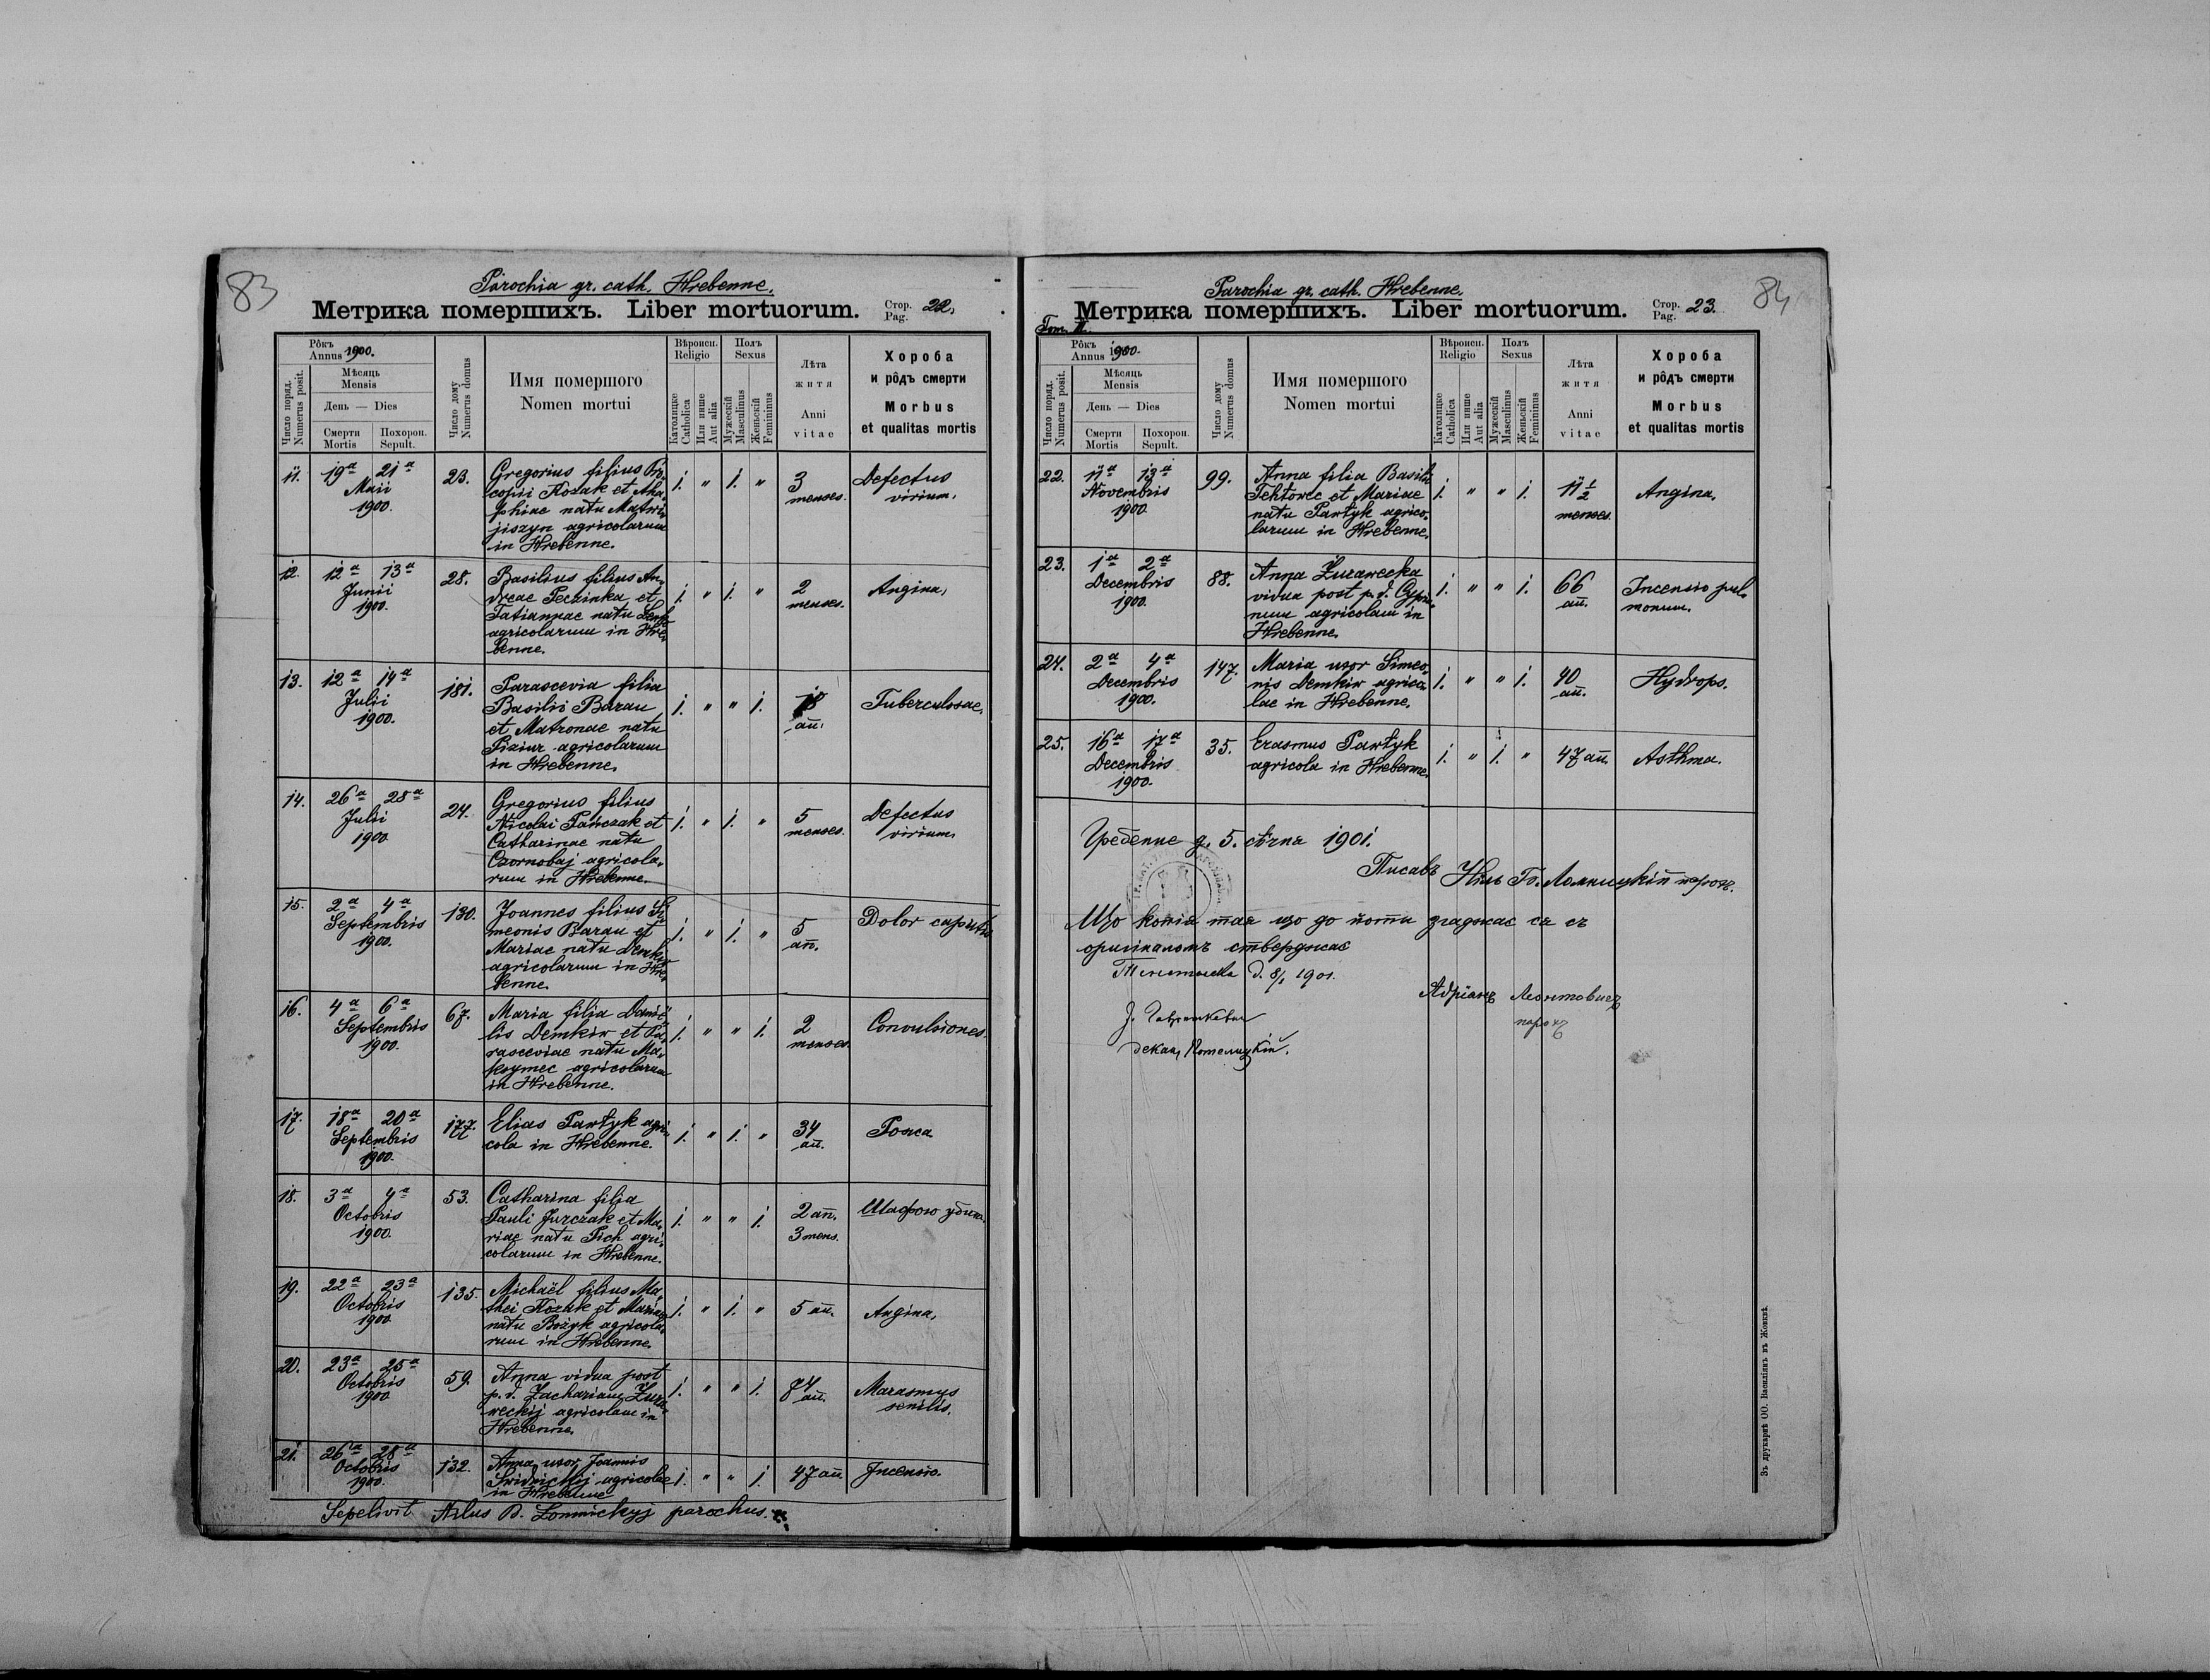 83
Parochia gr. cath. Hrebenne.
Метрика помершихъ. Liber mortuorum. Стор. Pag. 22.
Рôкъ Annus 1900.
Число поряд. Numerus posit.
Мѣсяць Mensis
День — Dies
Смерти Mortis
Похорон. Sepult.
Число дому Numerus domus
Имя помершого Nomen mortui
Вѣроисп. Religio
Католицке Catholica
Или инше Aut alia
Полъ Sexus
Мужескій Masculinus
Женьскій Femininus
Лѣта житя Anni vitae
Хороба и рôдъ смерти Morbus et qualitas mortis
11. 19ª 21ª Maii 1900. 23. Gregorius filius Pro-
copii Kozak et Aha-
phiae natu Matwi-
jiszyn agricolarum
in Hrebenne. 1. " 1. " 3 menses. Defectus virium.
12. 12ª 13ª Junii 1900. 28. Basilius filius An-
dreae Peczinka et
Tatiannae natu
agricolarum in Hre-
benne. 1. " 1. " 2 menses. Angina.
13. 12ª 14ª Julii 1900. 181. Parascevia filia
Basilii Baran
et Matronae natu
agricolarum
in Hrebenne. 1. " " 1. 18 añ. Tuberculosae.
14. 26ª 28ª Julii 1900 24. Gregorius filius
Nicolai Pańczak et
Catharinae natu
Czornobaj agricola-
rum in Hrebenne. 1. " 1. " 5 menses. Defectus virium
15. 2ª 4ª Septembris 1900. 130. Joannes filius Si-
meonis Baran et
Mariae natu Demkiw
agricolarum in Hre-
benne. 1. " 1. " 5 añ. Dolor capitis
16. 4ª 6ª Septembris 1900. 67. Maria filia Danië-
lis Demkiw et Pa-
rasceviae natu
agricolarum
in Hrebenne. 1. " " 1. 2 menses. Convulsiones.
17. 18ª 20ª Septembris 1900. 177. Elias Pawtyk agri-
cola in Hrebenne. 1. " 1. " 34 añ.
18. 3ª 4ª Octobris 1900. 53. Catharina filia
Pauli Jurczak et Ma-
riae natu Pich agri-
colarum in Hrebenne. 1. " " 1. 2 añ. 3 mens. Шафою
19. 22ª 23ª Octobris 1900 135. Michaël filius Ma-
thei Kozak et Mariae
natu Bożyk agricola-
rum in Hrebenne. 1. " 1. " 5 añ. Angina.
20. 23ª 25ª Octobris 1900 59. Anna vidua post
p. d. Zachariam Żura-
weckij agricolam in
Hrebenne. 1. " " 1. 74 añ. Marasmus senilis.
21. 26ª 28ª Octobris 1900. 132. Anna uxor Joannis
agricolae
in Hrebenne 1. " " 1. 47 añ Incensio.
Sepelivit Nilus B. Łomnickyj parochus.
84
Parochia gr. cath. Hrebenne.
Метрика помершихъ. Liber mortuorum. Стор. Pag. 23.
Tom. II.
Рôкъ Annus 1900.
Число поряд. Numerus posit.
Мѣсяць Mensis
День — Dies
Смерти Mortis
Похорон. Sepult.
Число дому Numerus domus
Имя помершого Nomen mortui
Вѣроисп. Religio
Католицке Catholica
Или инше Aut alia
Полъ Sexus
Мужескій Masculinus
Женьскій Femininus
Лѣта житя Anni vitae
Хороба и рôдъ смерти Morbus et qualitas mortis
22. 11ª 13ª Novembris 1900 99. Anna filia Basilii
et Mariae
natu Pawtyk agrico-
larum in Hrebenne. 1. " " 1. 11 1/2 menses. Angina.
23. 1ª 2ª Decembris 1900. 88. Anna Żurawecka
vidua post p. d. Cypria-
num agricolam in
Hrebenne. 1. " " 1. 66 añ. Incensio pul-
monum.
24. 2ª 4ª Decembris 1900. 147. Maria uxor Simeo-
nis Demkiw agrico-
lae in Hrebenne. 1. " " 1. 40 añ. Hydrops.
25. 16ª 17ª Decembris 1900. 35. Erasmus Pawtyk
agricola in Hrebenne. 1. " 1. " 47 añ. Asthma.
Гребенне д. 5. сѣчня 1901.
Писавъ Нилъ Б. Ломницкій парох.
Що копія тая що до йоти згаджає ся съ
оригіналомъ стверджає
д. 8/1 1901.
Адріанъ Леонтовичъ
парох
декан Потелицкій.
Зъ друкарнѣ ОО. Василіянъ въ Жовквѣ